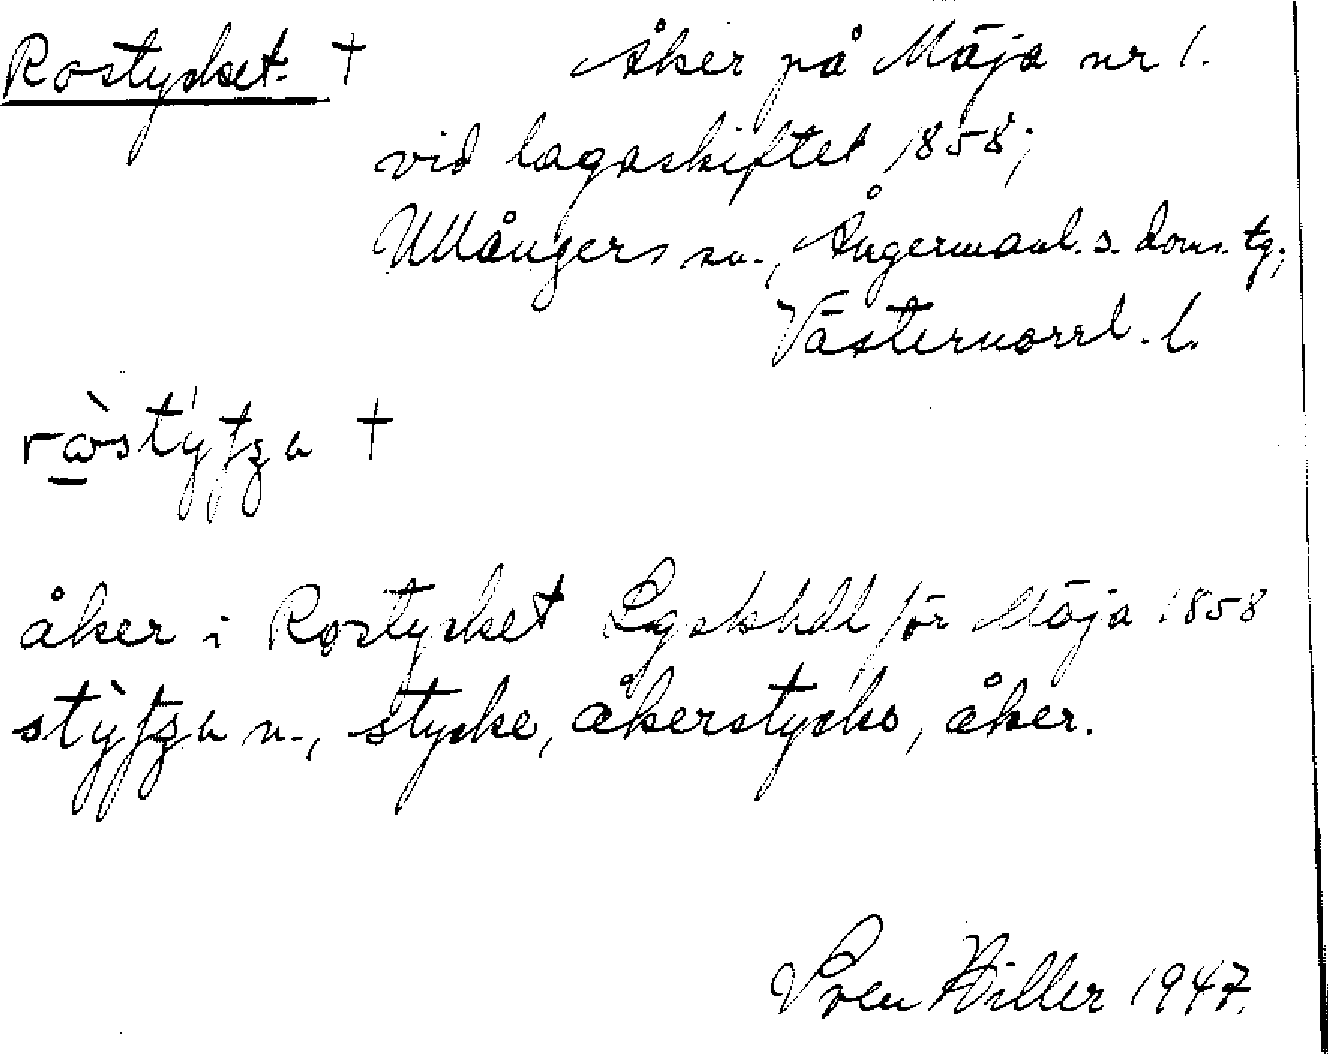 Rostycket † Åker på Mäja nr 1.
vid lagaskiftet 1858;
Ullångers sn., Ångermanl. s. doms. tg.;
Västernorrl. l.
†
åker i Rostycket Lgskhdl för Mäja 1858
n., stycke, åkerstycke, åker.
Sven Hiller 1947.